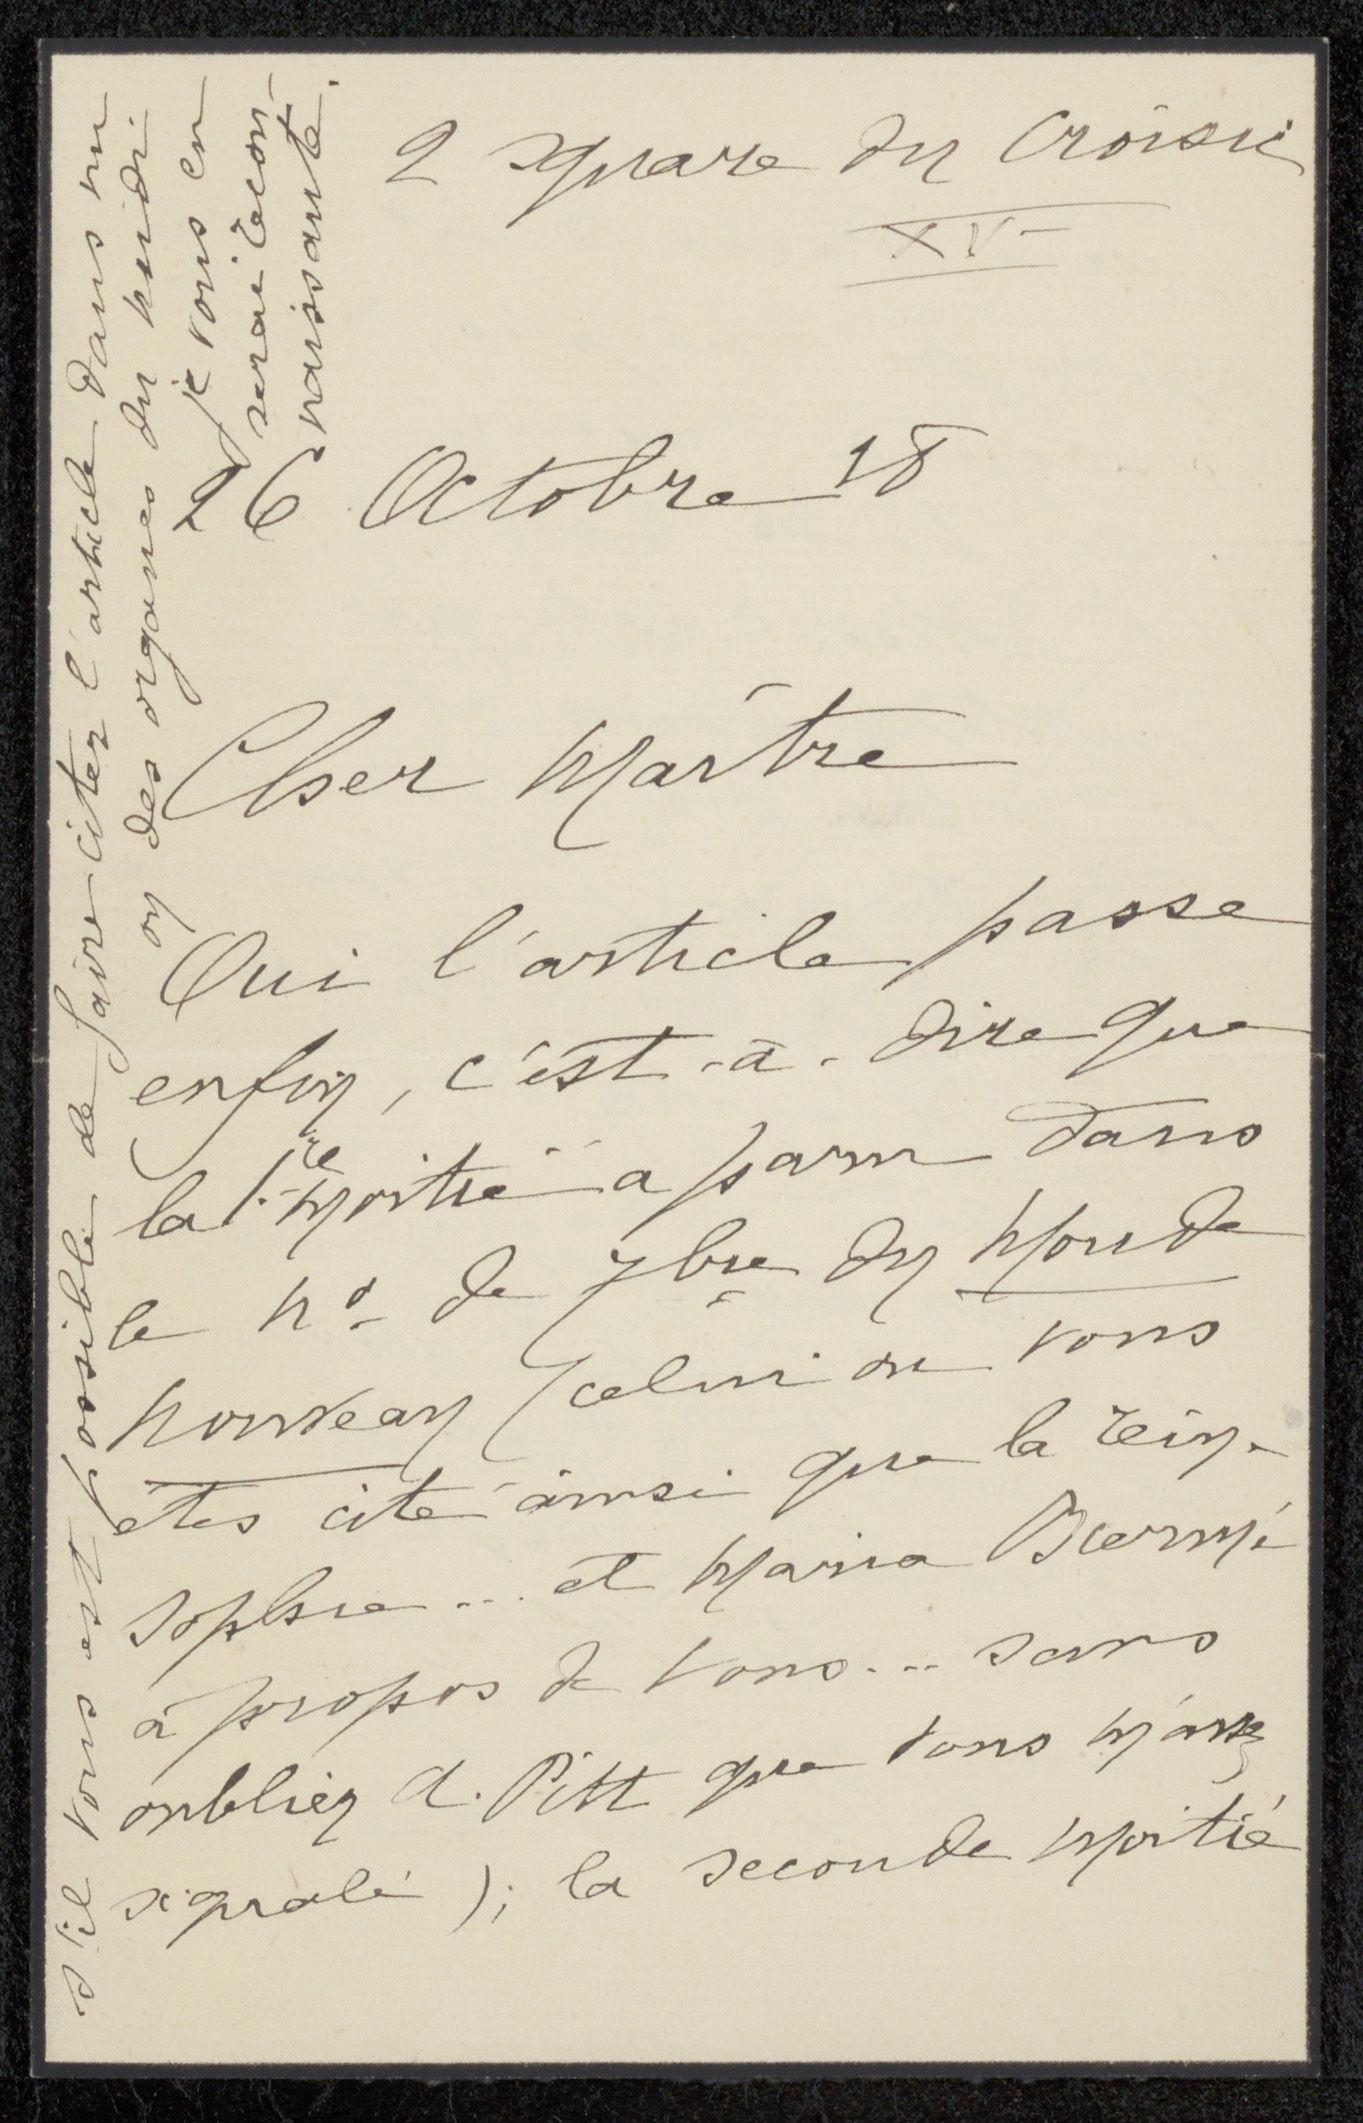 2 square du Croisic
XV
26 Octobre 18
Cher Maître
Oui l'article passe
enfin, c'est-à-dire que
la 1re moitié a paru dans
le No de 7bre du Monde
nouveau (celui où vous
êtes cité ainsi que la reine
Sophie... et Maria Biermé
à propos de vous... sans
oublier A. Pitt que vous m'avez
signalé); la seconde moitié
s'il vous est possible de faire citer l'article dans un
ou des organes du midi
je vous en
serai recon-
naissante.